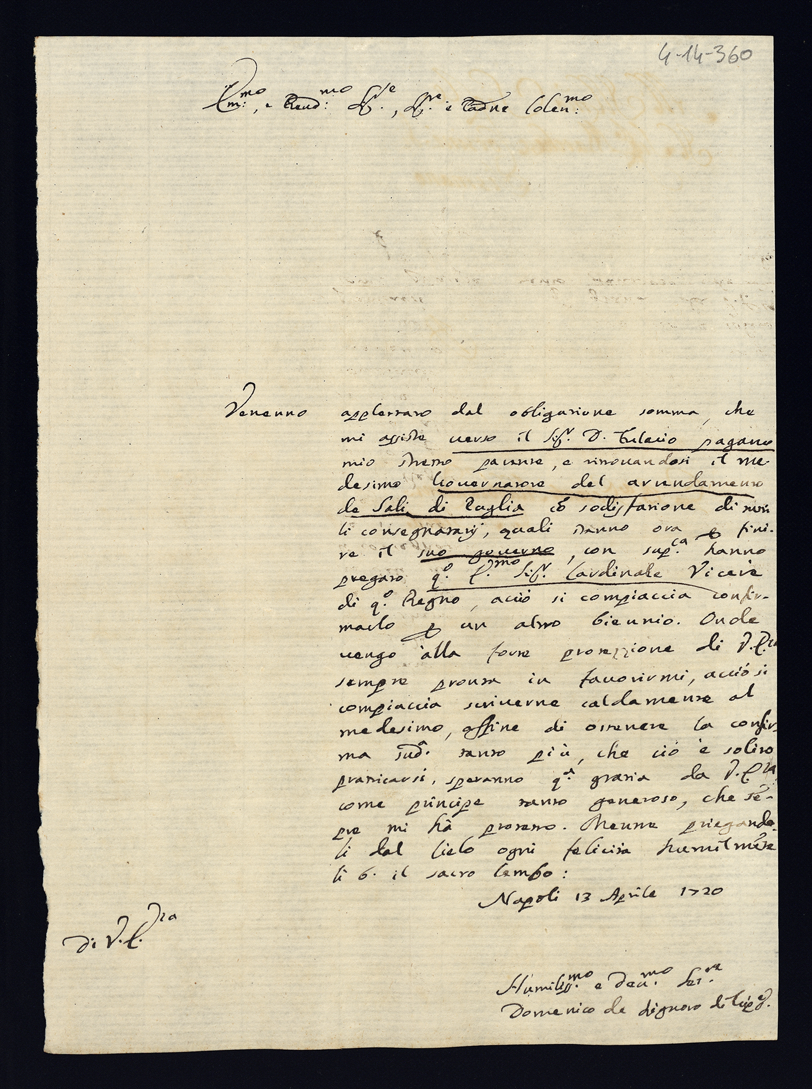 4-14-360
Em:mo, e Reud:mo Sig:re, Sig:re e Padne Colen:mo
Venenno applettato dal obligatione somma, che
mi assiste verso il Sig:r D. Fulevio pagano
mio stretto parente, e ritrovandosi il me-
desimo Governatore del arrendamento
de Sali di Puglia cō sodisfatione di tutti
li consegnatarij, quali stanno ora p fini-
re il suo governo, con sup:ca hanno
pregato q:o E:mo Sig:r Cardinale Vicerè
di q:o Regno, acciò si compiaccia confir-
marlo p un altro biennio. Onde
vengo alla forte protezzione di V.E:za
sempre pronta in favorirmi, acciò si
compiaccia scriverne caldamente al
medesimo, affine di ottenere la confir-
ma sud:a tanto più, che ciò è solito
praticarsi, speranno q:a gratia da V.E:za
come principe tanto generoso, che sē-
pre mi hà protetto. Mentre priegando-
li dal Cielo ogni felicità humilmēte
li b. il sacro lembo:
Napoli 13 Aprile 1720
Di V.E:za
Humiliss:mo e Deu:mo Ser:re
Domenico de